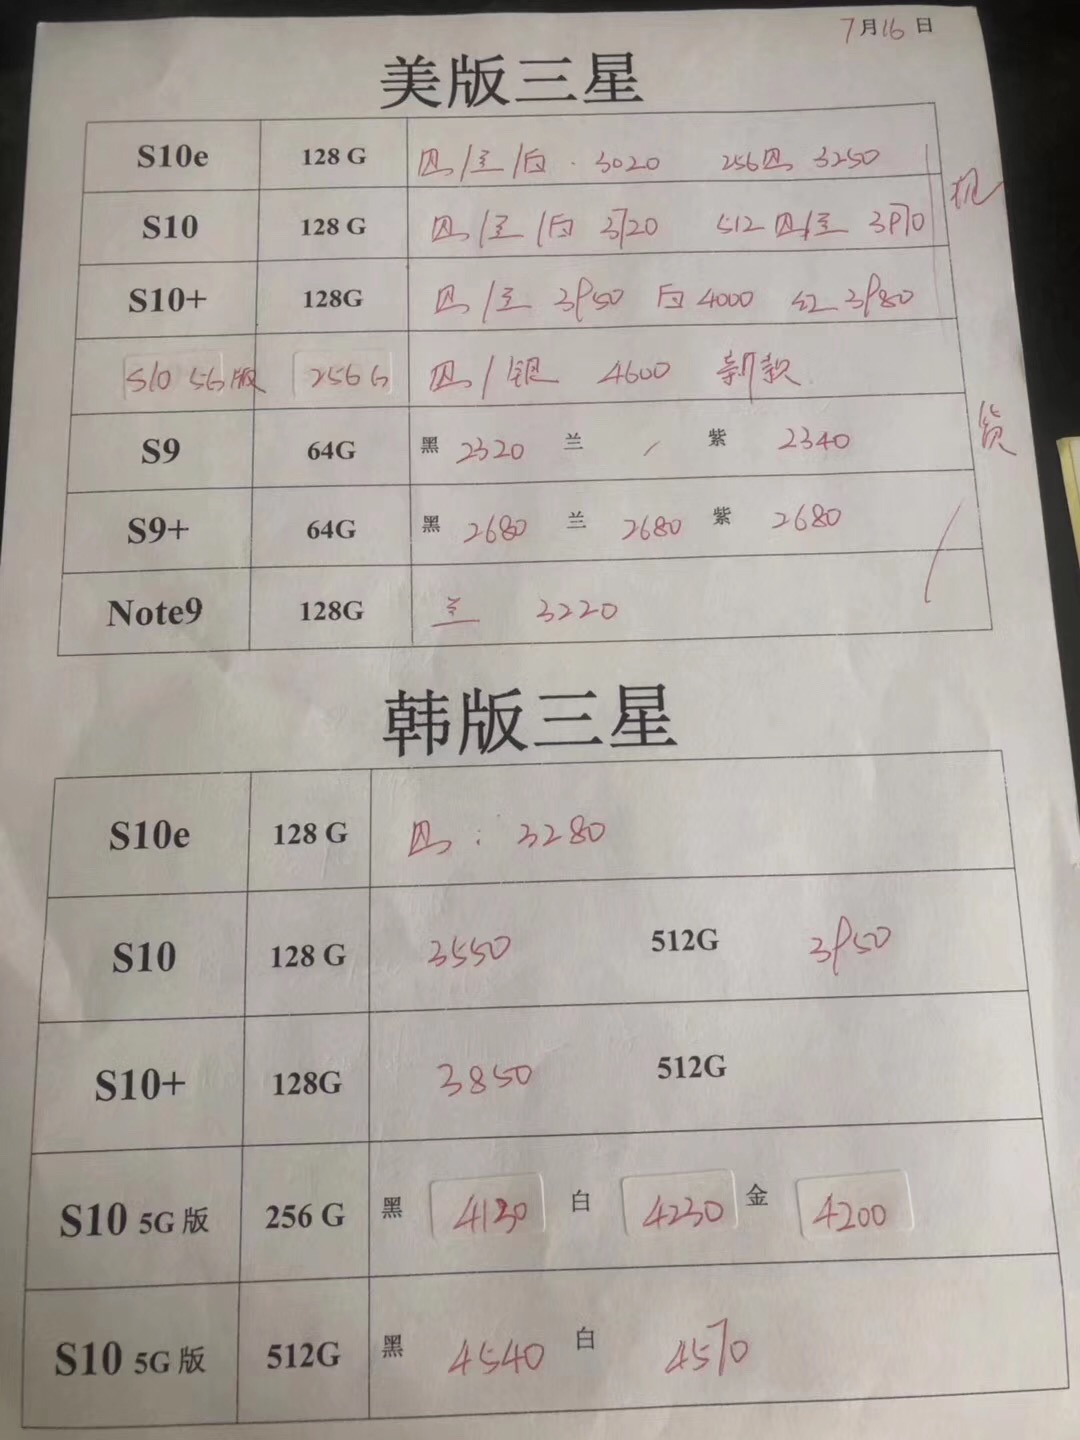 7月16日
美版三星
S10e 128 G 黑/兰/白 · 3020 256黑 3250
S10 128 G 黑/兰/白 3720 512黑/兰 3970
S10+ 128G 黑/兰 3950 白4000 红3980
S10 5G版 256G 黑/银 4600 新款
S9 64G 黑 2320 兰 / 紫 2340
S9+ 64G 黑 2680 兰 2680 紫 2680
Note9 128G 兰 3220
现
货
韩版三星
S10e 128 G 黑: 3280
S10 128 G 3550 512G 3950
S10+ 128G 3850 512G
S10 5G版 256 G 黑 4130 白 4230 金 4200
S10 5G版 512G 黑 4540 白 4570